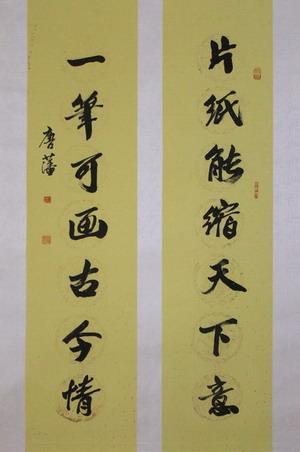 片纸能缩天下意
一筆可画古今情
唐藩